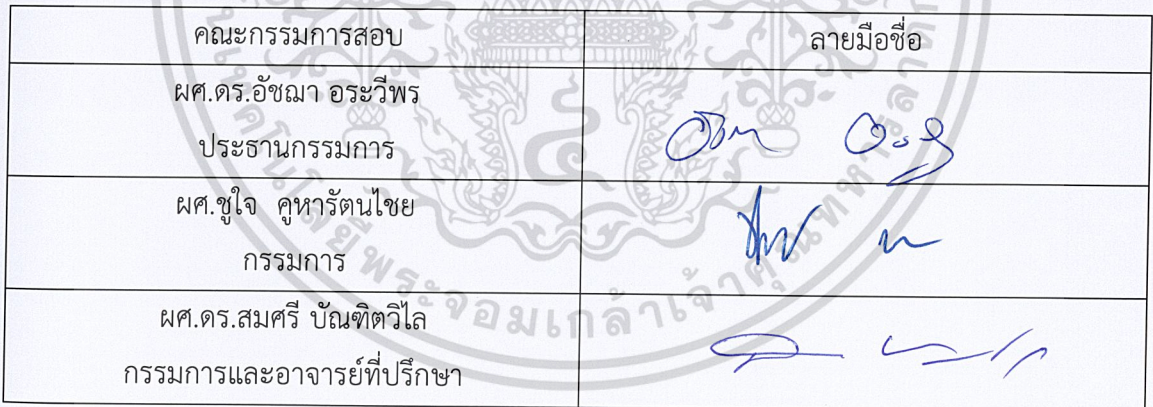 คณะกรรมการสอบ
ลายมือชื่อ
ผศ.ดร.อัชฌา อระวีพร
ประธานกรรมการ
ผศ.ชูใจ คูหารัตนไชย
กรรมการ
ผศ.ดร.สมศรี บัณฑิตวิไล
กรรมการและอาจารย์ที่ปรึกษา